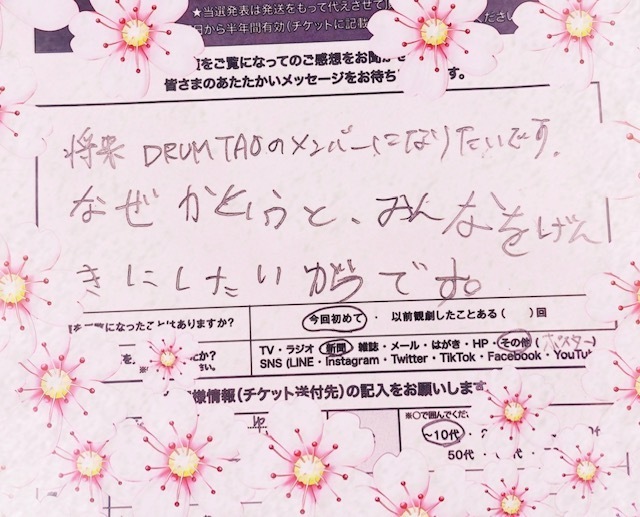 ★当選発表は発送をもって代えさせて
日から半年間有効(チケットに記載
をご覧になってのご感想をお聞かせ
皆さまのあたたかいメッセージをお待ち す。
将来 DRUM TAOのメンバーになりたいです。
なぜかというと、みんなをげん
きにしたいからです。
ご覧になったことはありますか?
今回初めて ・ 以前観劇したことある( )回
か?
TV・ラジオ・新聞・雑誌・メール・はがき・HP・その他(ポスター)
さい。
SNS (LINE・Instagram・Twitter・TikTok・Facebook・YouTu
様情報(チケット送付先)の記入をお願いします
※〇で囲んでくだ
~10代・
50代 ・ 代